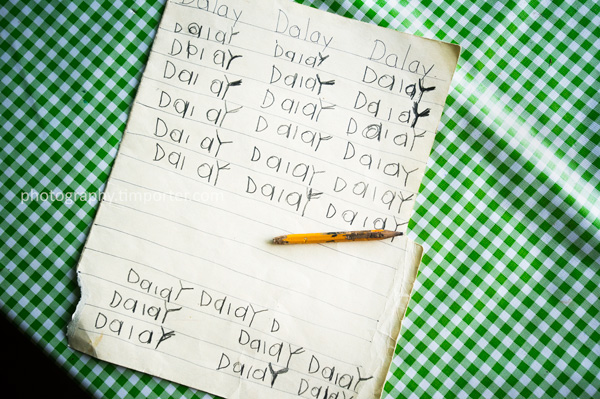 Dalay Dalay Dalay
Dalay Dalay Dalay
Dalay Dalay Dalay
Dalay Dalay Dalay
Dalay Dalay Dalay
Dalay Dalay Dalay
Dalay Dalay Dalay
photography.timporter.com
Dalay Dalay D
Dalay Dalay Dalay
Dalay Dalay Dalay